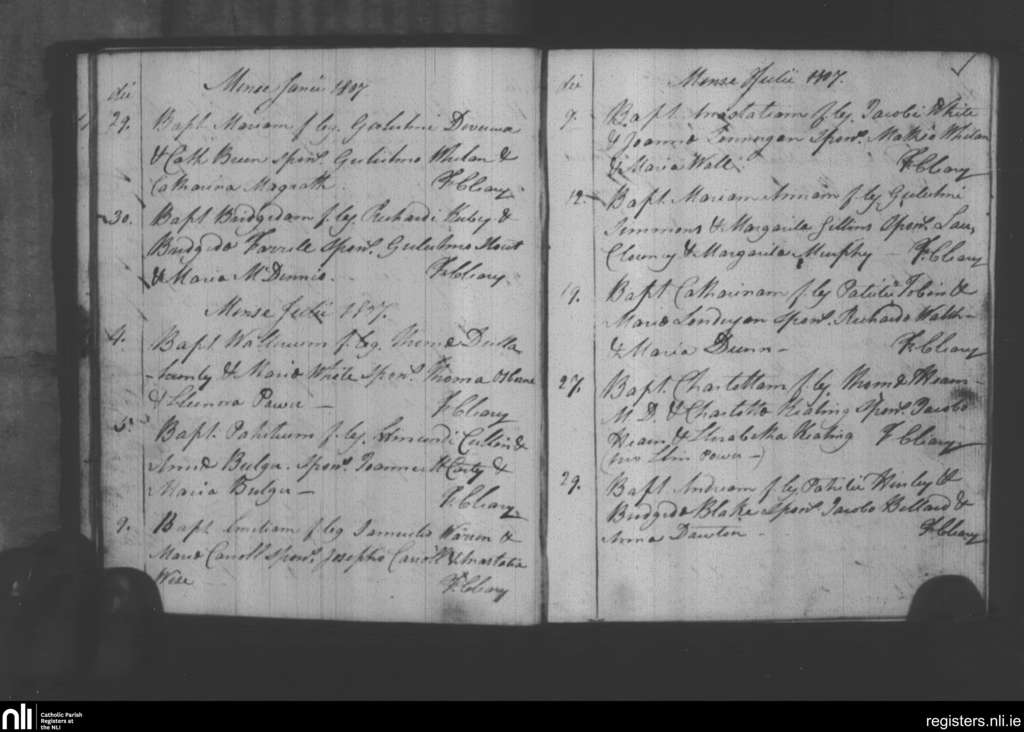 die
Mense Junii 1807
29. Bapt. Mariam f. leg. Gulielmi
& Cath. Breen spons. Gulielmo Whelan &
Catharina Magrath. F. Cleary
30. Bapt. Bridgidam f. leg. Richardi &
Bridgidæ Farrele spons. Gulielmo Stout
& Maria McDennis. F. Cleary
Mense Julii 1807.
4. Bapt. f. leg. Thomæ
& Mariæ White spons. Thoma
& Eleonora Power — F. Cleary
5. Bapt. Patritium f. leg. Edmundi Cullin &
Annæ Bulger. spons. Joanne McCarty &
Maria Bulger — F. Cleary
9. Bapt. Emiliam f. leg. &
Mariæ Carroll spons. Josepho Carroll & Anastatia
Wise — F. Cleary
die
Mense Julii 1807.
9. Bapt. Anastatiam f. leg. Jacobi White
& Joannæ Finnegan spons. Whelan
& Maria Wall. F. Cleary
12. Bapt. Mariam Annam f. leg. Gulielmi
Simmons & Margarita spons. Lau.
Clooney & Margarita Murphy — F. Cleary
19. Bapt. Catharinam f. leg. Patritii Tobin &
Mariæ Londergan spons. Richardo Walsh
& Maria Dunn — F. Cleary
27. Bapt. Charlottam f. leg. Thomæ Hearn
M.D. & Charlottæ Keating spons. Jacobo
Hearn & Elizabetha Keating F. Cleary
Power —)
29. Bapt. Andream f. leg. Patritii Hurley &
Bridgidæ Blake spons. Jacobo Bollard &
Anna Dawton — F. Cleary
nli
Catholic Parish
Registers at
the NLI
registers.nli.ie